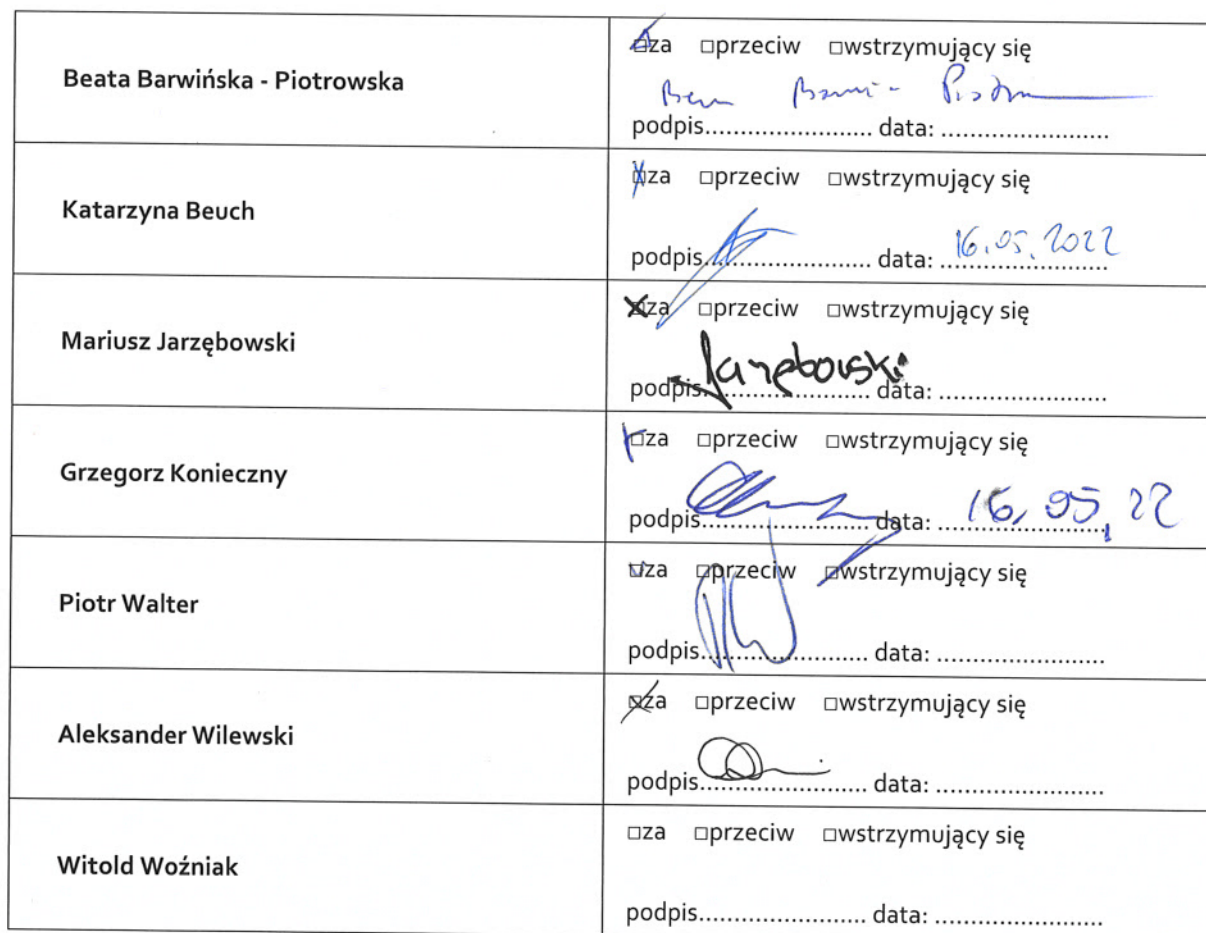 Beata Barwińska - Piotrowska
□za □przeciw □wstrzymujący się
podpis........................ data: ........................
Katarzyna Beuch
□za □przeciw □wstrzymujący się
podpis........................ data: 16.05.2022
Mariusz Jarzębowski
□za □przeciw □wstrzymujący się
Jarzębowski
podpis........................ data: ........................
Grzegorz Konieczny
□za □przeciw □wstrzymujący się
podpis........................ data: 16.05.22
Piotr Walter
□za □przeciw □wstrzymujący się
podpis........................ data: ........................
Aleksander Wilewski
□za □przeciw □wstrzymujący się
podpis........................ data: ........................
Witold Woźniak
□za □przeciw □wstrzymujący się
podpis........................ data: ........................